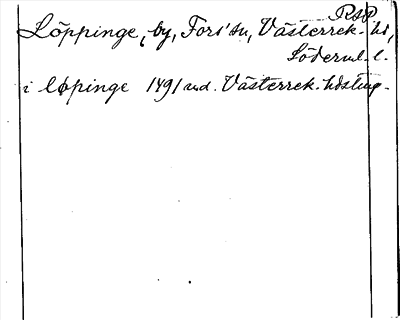 RAP
Löppinge, by, Fors' sn, Västerrek. hd,
Söderml. l.
i løpinge 1491 Västerrek. hdsting.